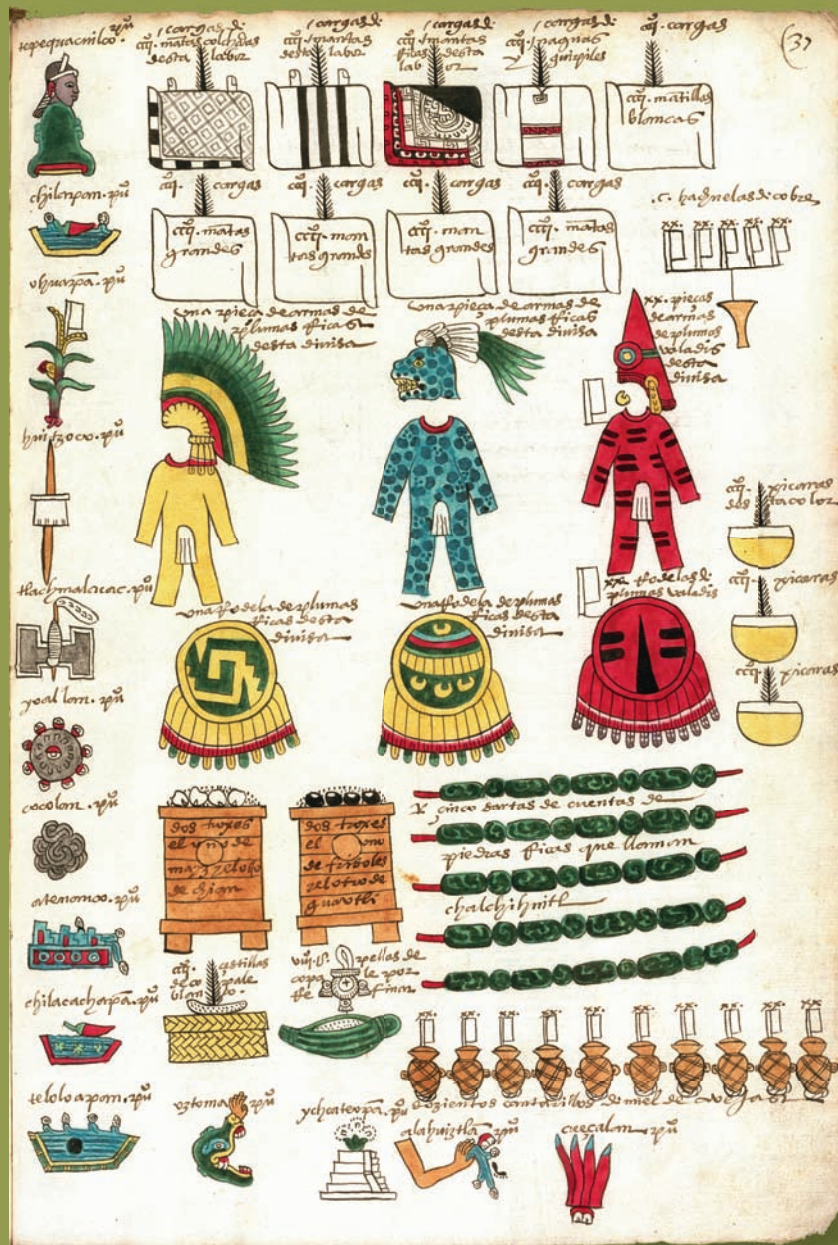 tepequacuilco . puo
cargas de
cccc . mātas colchadas
desta labor
cargas de
cccc . mantas
desta labor
cargas de
cccc . mantas
ricas desta
labor
cargas de
cccc . naguas
y guipiles
cccc . cargas
cccc . mātillas
blancas
(37
chilapan . puo
cccc . cargas
cccc . mātas
grandes
cccc . cargas
cccc . man
tas grandes
cccc . cargas
cccc . man
tas grandes
cccc . cargas
cccc . mātas
grandes
.c. hachuelas de cobre
xx. xx. xx. xx. xx.
ohuapā . puo
una pieça de armas de
plumas ricas
desta divisa
una pieça de armas de
plumas ricas
desta divisa
xx. pieças
de armas
de plumas
valadis
desta
divisa
huitzoco . puo
cccc . xicaras
desta color
tlachmalacac . puo
una rodela de plumas
ricas desta
divisa
una rodela de plumas
ricas desta
divisa
xx. rodelas de
plumas valadis
cccc . xicaras
cccc . xicaras
yoallan . puo
cocolan . puo
dos troxes
el uno de
mayz y el otro
de chian
dos troxes
el uno
de frisoles
y el otro de
guautli
cinco sartas de cuentas de
piedras ricas que llaman
chalchihuitl
atenanco . puo
cccc . cestillas
de copale
blanco
viii.U. pellas de
copale por
refinar
chilacachapā . puo
xx. xx. xx. xx. xx. xx. xx. xx. xx. xx.
dozientos cantarillos de miel de avejas
teloloapan . puo
oztoma . puo
ychcateopā . puo
alahuiztlā . puo
cueçalan . puo